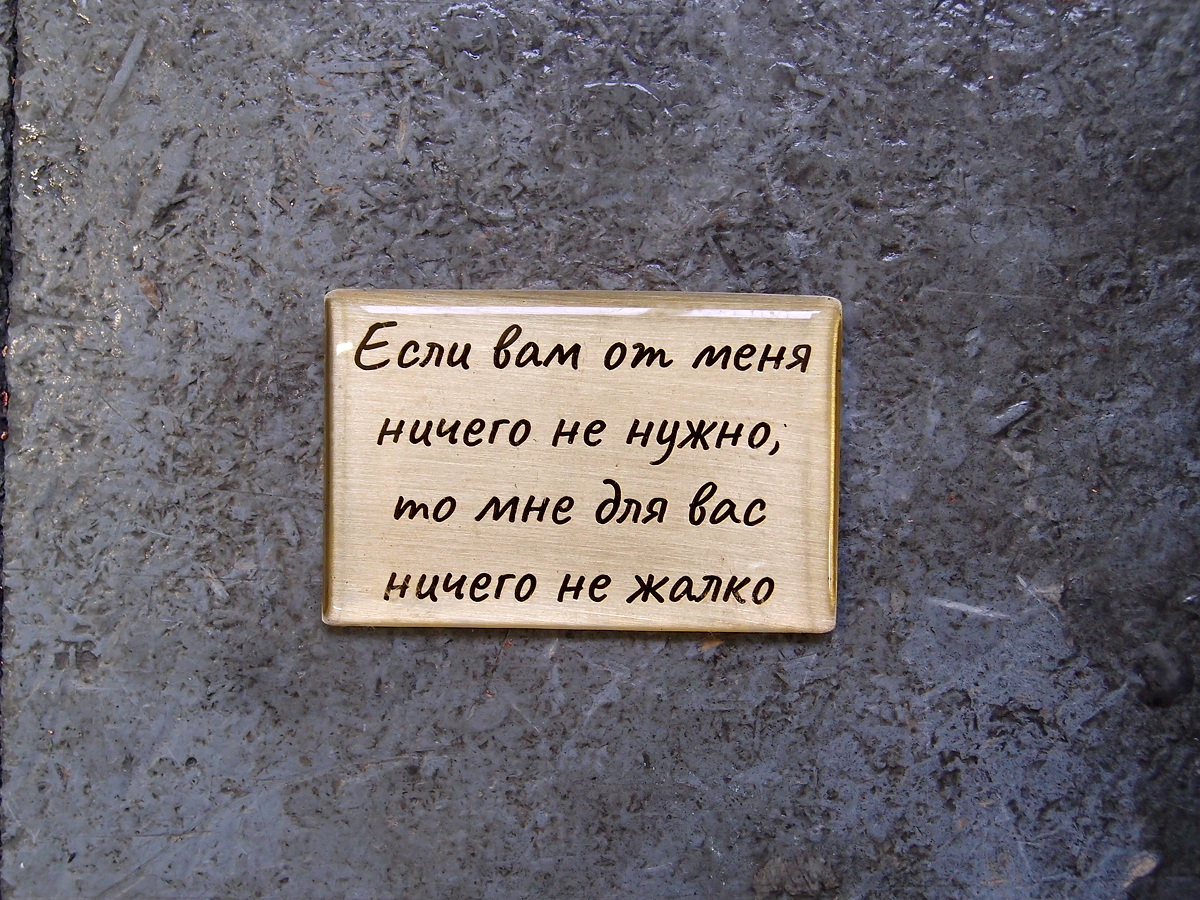 Если вам от меня
ничего не нужно,
то мне для вас
ничего не жалко